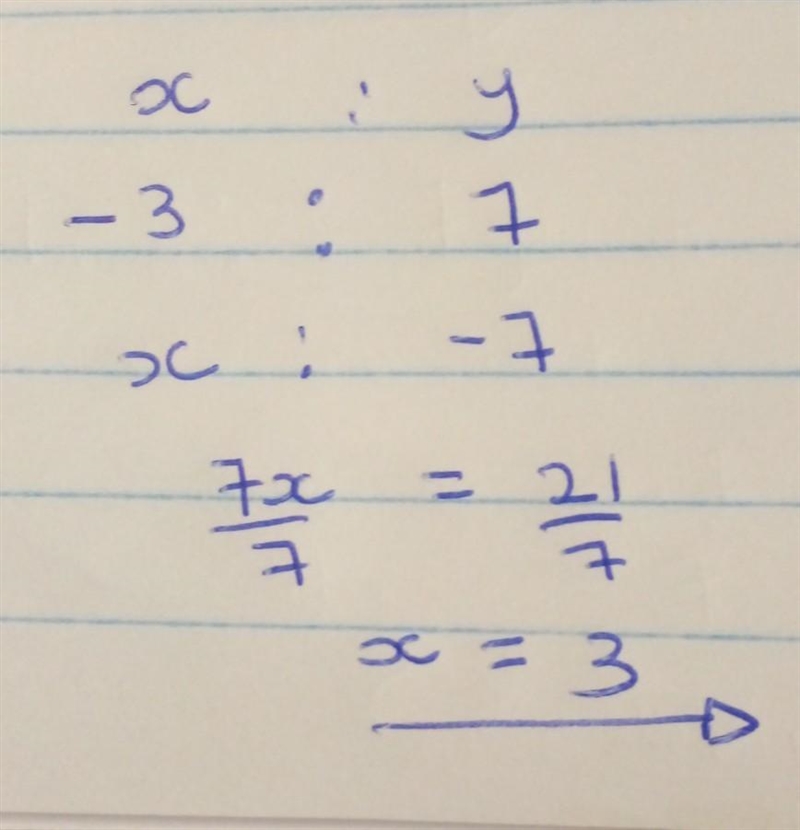 x : y
-3 : 7
x : -7
7x/7 = 21/7
x = 3